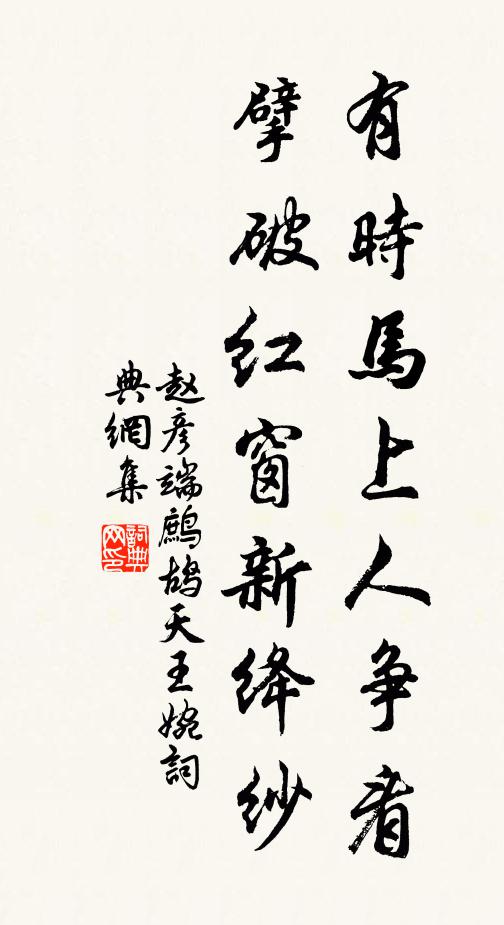 有時馬上人争看
擘破紅窗新絳紗
趙彥端鷓鴣天王婉詞
典網集
詞典網印